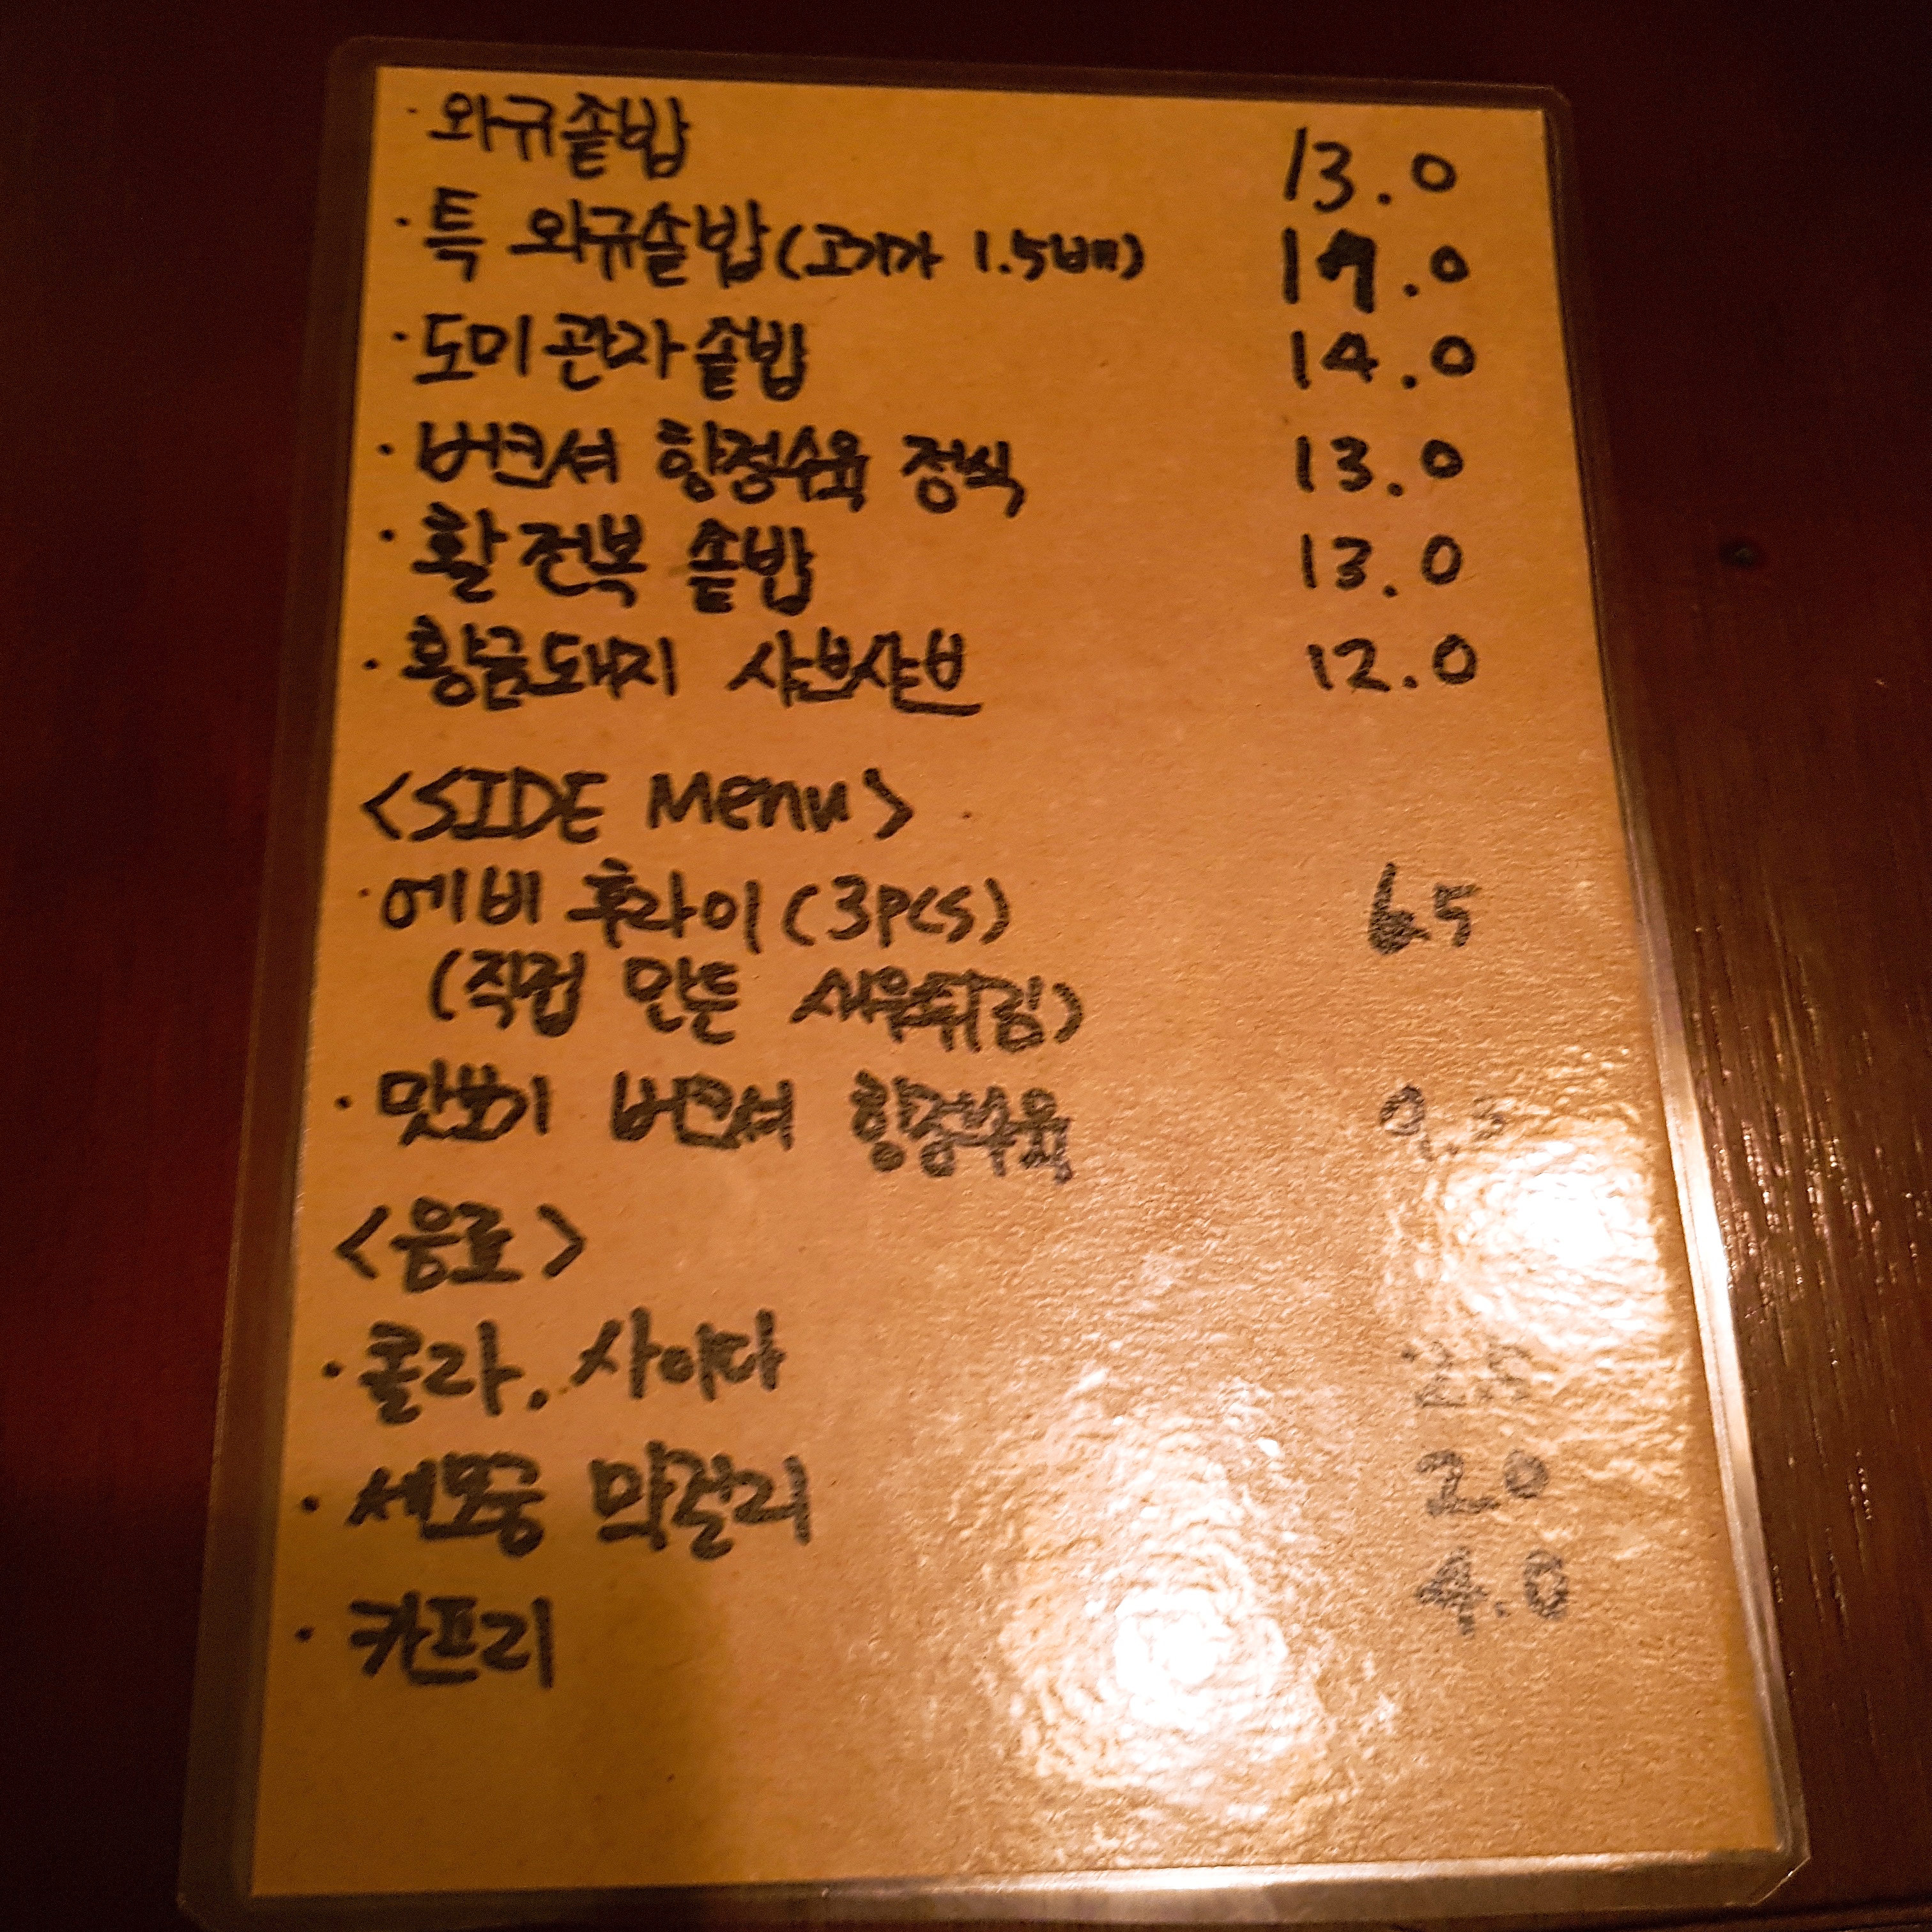 · 와규솥밥 13.0
· 특 와규솥밥(고기가 1.5배)
· 도미관자솥밥 14.0
· 버크셔 항정수육 정식 13.0
· 활전복 솥밥 13.0
· 황금돼지 샤브샤브 12.0
<SIDE Menu>
· 에비 후라이 (3pcs) 6.5
(직접 만든 새우튀김)
· 맛보기 버크셔 항정수육
<음료>
· 콜라, 사이다
· 세모금 막걸리 2.0
· 카프리 4.0